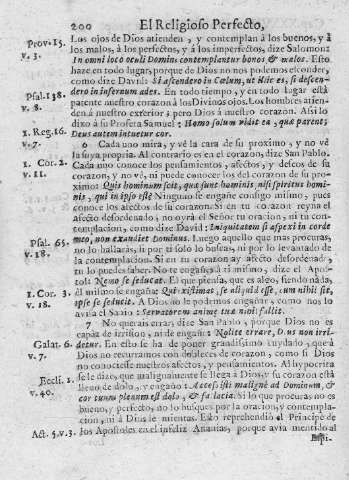 200 El Religioso Perfecto,
Prov. 15. v. 3.
Los ojos de Dios atienden, y contemplan à los buenos, y à
los malos, à los perfectos, y à los imperfectos, dize Salomon:
In omni loco oculi Domini contemplantur bonos & malos. Esto
haze en todo lugar, porque de Dios no nos podemos esconder,
como dize David: Si ascendero in Cœlum, ut illic es, si descen-
dero in infernum ades. En todo tiempo, y en todo lugar està
Psal. 138. v. 8.
patente nuestro corazon à los Divinos ojos. Los hombres atien-
den à nuestro exterior; pero Dios à nuestro corazon. Assi lo
dixo à su Profeta Samuel: Homo solum videt ea, quæ parent;
1. Reg. 16. v. 7.
Deus autem intuetur cor.
6 Cada uno mira, y vè la cara de su proximo, y no vè
la suya propria. Al contrario es en el corazon, dize San Pablo.
1. Cor. 2. v. 11.
Cada uno conoce los pensamientos, afectos, y deseos de su
corazon, y no vè, ni puede conocer los del corazon de su pro-
ximo: Quis hominum scit, quæ sunt hominis, nisi spiritus homi-
nis, qui in ipso est? Ninguno se engañe consigo mismo, pues
conoce los afectos de su corazon. Si en tu corazon reyna el
afecto desordenado, no oyrà el Señor tu oracion, ni tu con-
templacion, como dize David: Iniquitatem si aspexi in corde
Psal. 65. v. 18.
meo, non exaudiet Dominus. Luego aquello que mas procuras,
no lo hallaràs, si por ti solo lo buscas, ni por lo levantado de
la contemplacion. Si en tu corazon ay afecto desordenado,
tu lo puedes saber. No te engañes à ti mismo, dize el Apos-
tol: Nemo se seducat. El que piensa, que es algo, siendo nada,
1. Cor. 3. v. 18.
èl mismo se engaña: Qui existimat, se aliquid esse, cum nihil sit,
ipse se seducit. A Dios no le podemos engañar, como nos lo
avisa el Sabio: Servatorem animæ tuæ nihil fallit.
7 No queras errar, dize San Pablo, porque Dios no es
capaz de irrision, ni de engaño: Nolite errare, Deus non irri-
Galat. 6. v. 7.
detur. En esto se ha de poner grandissimo cuydado, que à
Dios no recurramos con dobleces de corazon, como si Dios
no conociesse nuestros afectos, y pensamientos. Al hypocrita
Eccli. 1. v. 40.
se le dize, que malignamente se llega à Dios, y su corazon està
lleno de dolo, y engaño: Accessisti malignè ad Dominum, &
cor tuum plenum est dolo, & fallacia. Si lo que procuras no es
bueno, y perfecto, no lo busques por la oracion, y contempla-
cion, ni à Dios le mientas. Esto reprehendiò el Principe de
Act. 5. v. 3.
los Apostoles en el infeliz Ananias, porque avia mentido al